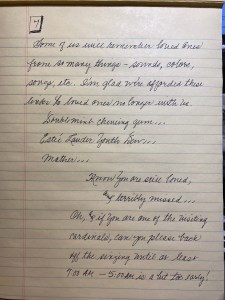 7
Some of us will remember loved ones
from so many things – sounds, colors,
songs, etc. I'm glad we're afforded these
links to loved ones no longer with us.
Doublemint chewing gum...
Estée Lauder Youth Dew...
Mother...
Know you are still loved,
& terribly missed...
Oh, & if you are one of the visiting
cardinals, can you please back
off the singing until at least
7:00 AM – 5:00 AM is a bit too early!